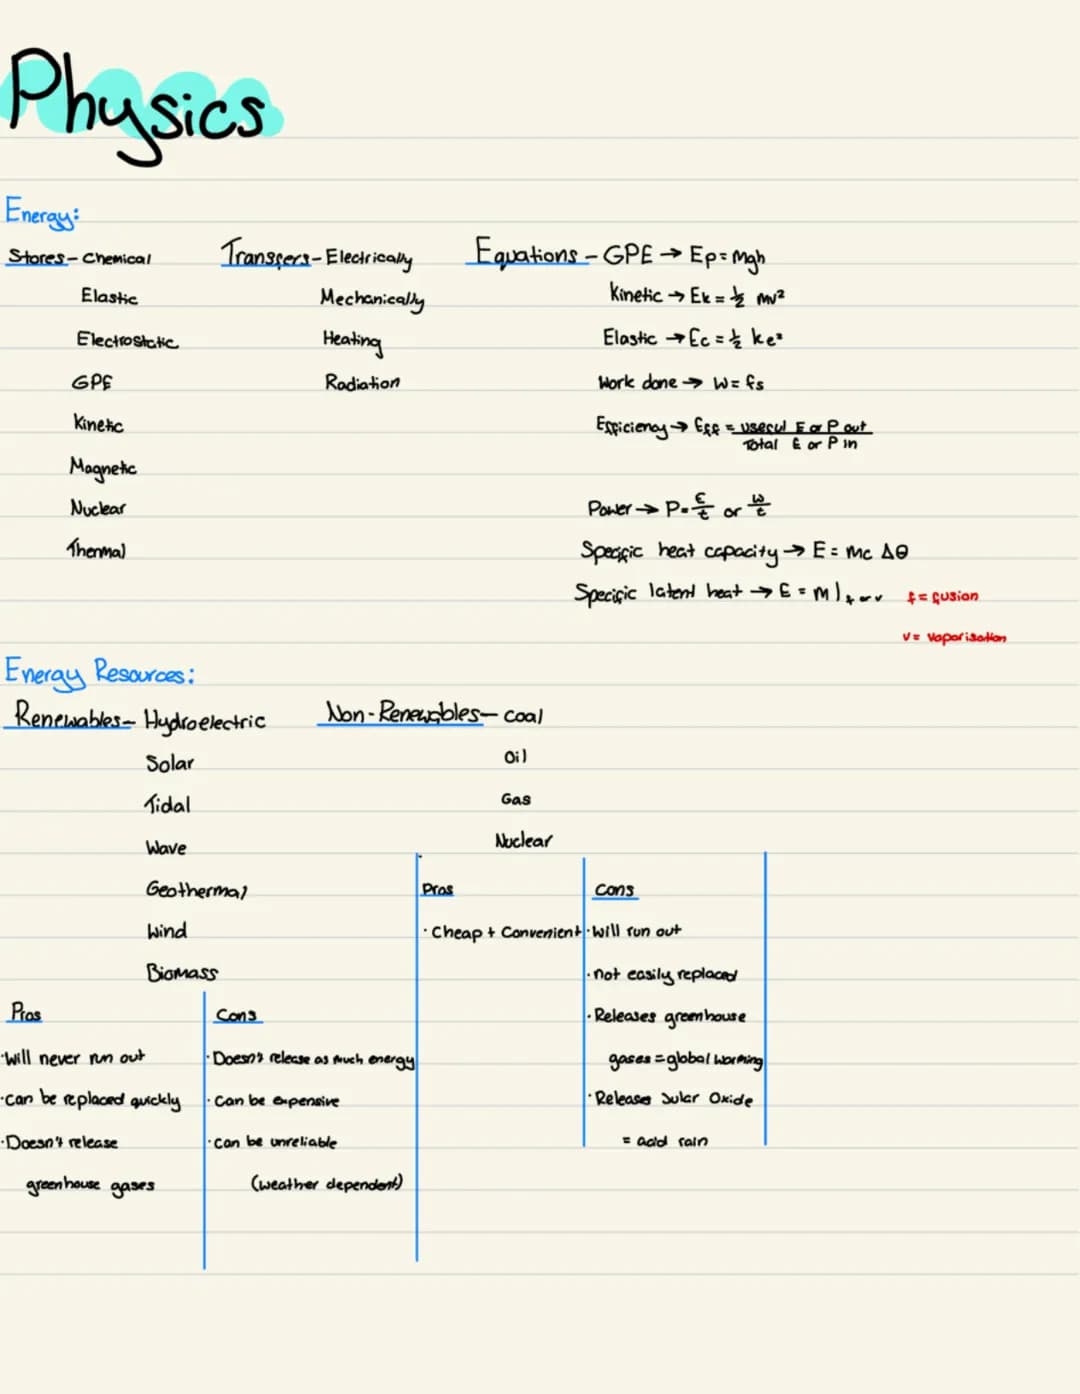 Physics
Energy:
Stores - Chemical
Elastic
Electrostatic
GPE
Kinetic
Magnetic
Nuclear
Thermal
Transfers - Electrically
Mechanically
Heating
Radiation
Equations - GPE → Ep = mgh
Kinetic → Ek = ½ mv²
Elastic → Ee = ½ ke²
Work done → W = fs
Efficiency → Eff = useful E or P out
Total E or P in
Power → P = E/t or w/t
Specific heat capacity → E = mc Δθ
Specific latent heat → E = m l f or v
f = fusion
v = vaporisation
Energy Resources:
Renewables - Hydroelectric
Solar
Tidal
Wave
Geothermal
Wind
Biomass
Pros
· Will never run out
· can be replaced quickly
· Doesn't release
greenhouse gases
Cons
· Doesn't release as much energy
· Can be expensive
· can be unreliable
(weather dependent)
Non-Renewables - coal
Oil
Gas
Nuclear
Pros
· Cheap + Convenient
Cons
· Will run out
· not easily replaced
· Releases greenhouse
gases = global warming
· Releases Sulfar Oxide
= acid rain